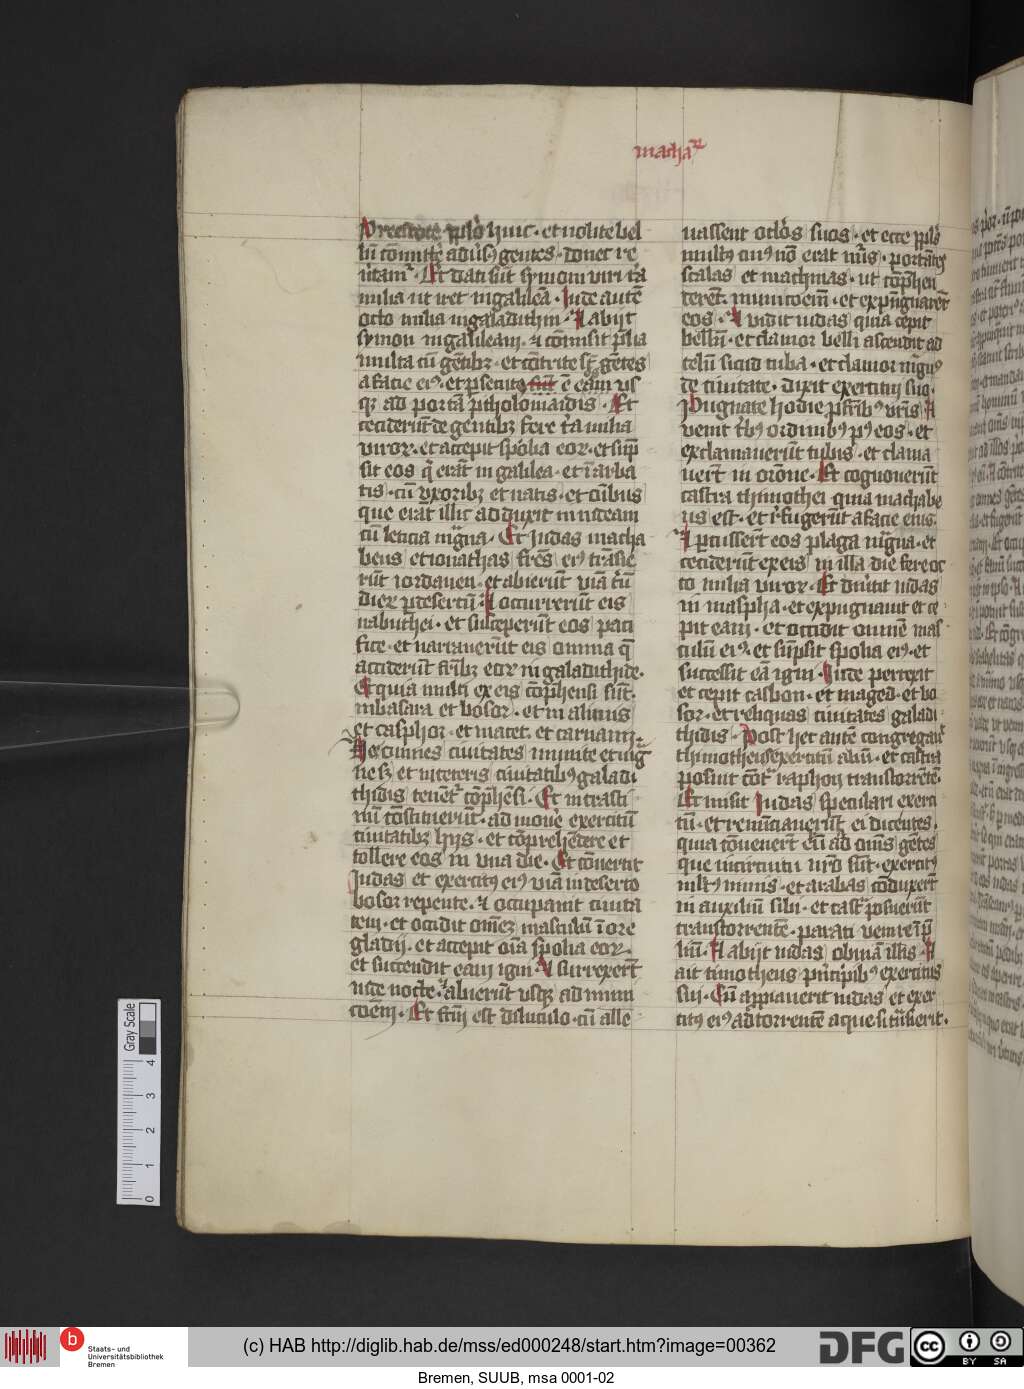 machaꝝ
Preestote pplo huic · et nolite bel
lū cōmitte adūsꝰ gentes · donec re
ūtamr̄ · Et dati sūt symoni viri t̄a
milia ut iret in galileā · Jude autē
octo milia in galadithin · Et abijt
symon in galileam · et cōmisit p̄lia
multa cū gētibꝫ · et cōtrite sūt gētes
a facie eiꝰ · et psecutꝰ ē eas us
qꝫ ad portā ptholomaidis · Et
ceciderūt de gentibꝫ fere t̄a milia
viroꝝ · et accepit spolia eoꝝ · et sūp
sit eos q̄ erāt in galilea · et ī arba
tis · cū vxoribꝫ et natis · et oībus
que erāt illic adduxit in iudeam
cū leticia mgna · Et Judas macha
beus et ionathas frēs eiꝰ trāsie
rūt iordanen · et abierūt viā t̄ū
dieꝝ p desertū Et occurrerūt eis
nabuthei · et susceperūt eos paci
fice · et narrauerūt eis omnia q̄
acciderūt fribꝫ eoꝝ in galadithide ·
Et quia multi ex eis cōphensi sūt ·
in basara et bosor · et in alimis
et casphor · et macet · et carnaim ·
Hee omnes ciuitates munite et mḡ
ne sꝫ et in ceteris ciuitatibꝰ galadi
thidis tenētr̄ cōphēsi · Et in crasti
nū cōstituerūt · admouē exercitū
ciuitatibꝫ hijs · et cōprehēdere et
tollere eos in una die · Et cōuertit
Judas et exercitꝰ eiꝰ viā in deserto
bosor repente · et occupauit ciuita
tem · et occidit omēꝫ masculū ī ore
gladij · et accepit oīa spolia eoꝝ ·
et succendit eam igni · Et surrexert̄
inde nocte · et abierūt vsqꝫ ad muni
coēm · Et fcm̄ est diluculo · cū alle
uassent oclos suos · et ecce ppls
multꝰ cuiꝰ nō erat nrus · portātes
scalas et machinas · ut cōphen
derēt · municoēm · et expūgnarēt
eos · Et vidit iudas quia cepit
bellū · et clamor belli ascendit ad
celū sicud tuba · et clamor mgnꝰ
de ciuitate · dixit exercitui suo ·
Pugnate hodie p frībꝰ vris Et
venit tbꝰ ordinibꝰ pꝰ eos · et
exclamauerūt tubis · et clama
uert̄ in orōne · Et cognouerūt
castra thimothei quia machabe
us est · et rfugerūt a facie eius ·
Et pcussert̄ eos plaga mgna · et
ceciderūt ex eis in illa die fere oc
to milia viroꝝ · Et diutit iudas
in maspha · et expugnauit et ce
pit eam · et occidit omnē mas
culū eiꝰ · et sūpsit spolia eiꝰ · et
successit eā igni · Inde perrexit
et cepit casbon · et maged · et bo
sor · et reliquas ciuitates galadi
thidis · Post hec autē congregauit
thimotheus exercitū aliū · et castra
posuit cōt raphon trans torrētē ·
Et misit Judas speculari exerci
tū · et renūciauerūt ei dicentes ·
quia cōuenert̄ cū ad oms gētes
que in circuitu nrō sūt · exercitꝰ
mltꝰ nimis · et arabas cōduxert̄
in auxiliū sibi · et cast posuerūt
trans torrentē · parati venire ī p̄
liū · Et abijt iudas obuiā illis · Et
ait timotheus pncipibꝰ exercitus
sui · Cū appauerit iudas et exer
citꝰ eiꝰ ad torrentē aque si tnsierit ·
Gray Scale
4
3
2
1
0
b
Staats- und
Universitätsbibliothek
Bremen
(c) HAB http://diglib.hab.de/mss/ed000248/start.htm?image=00362
DFG
cc
BY SA
Bremen, SUUB, msa 0001-02